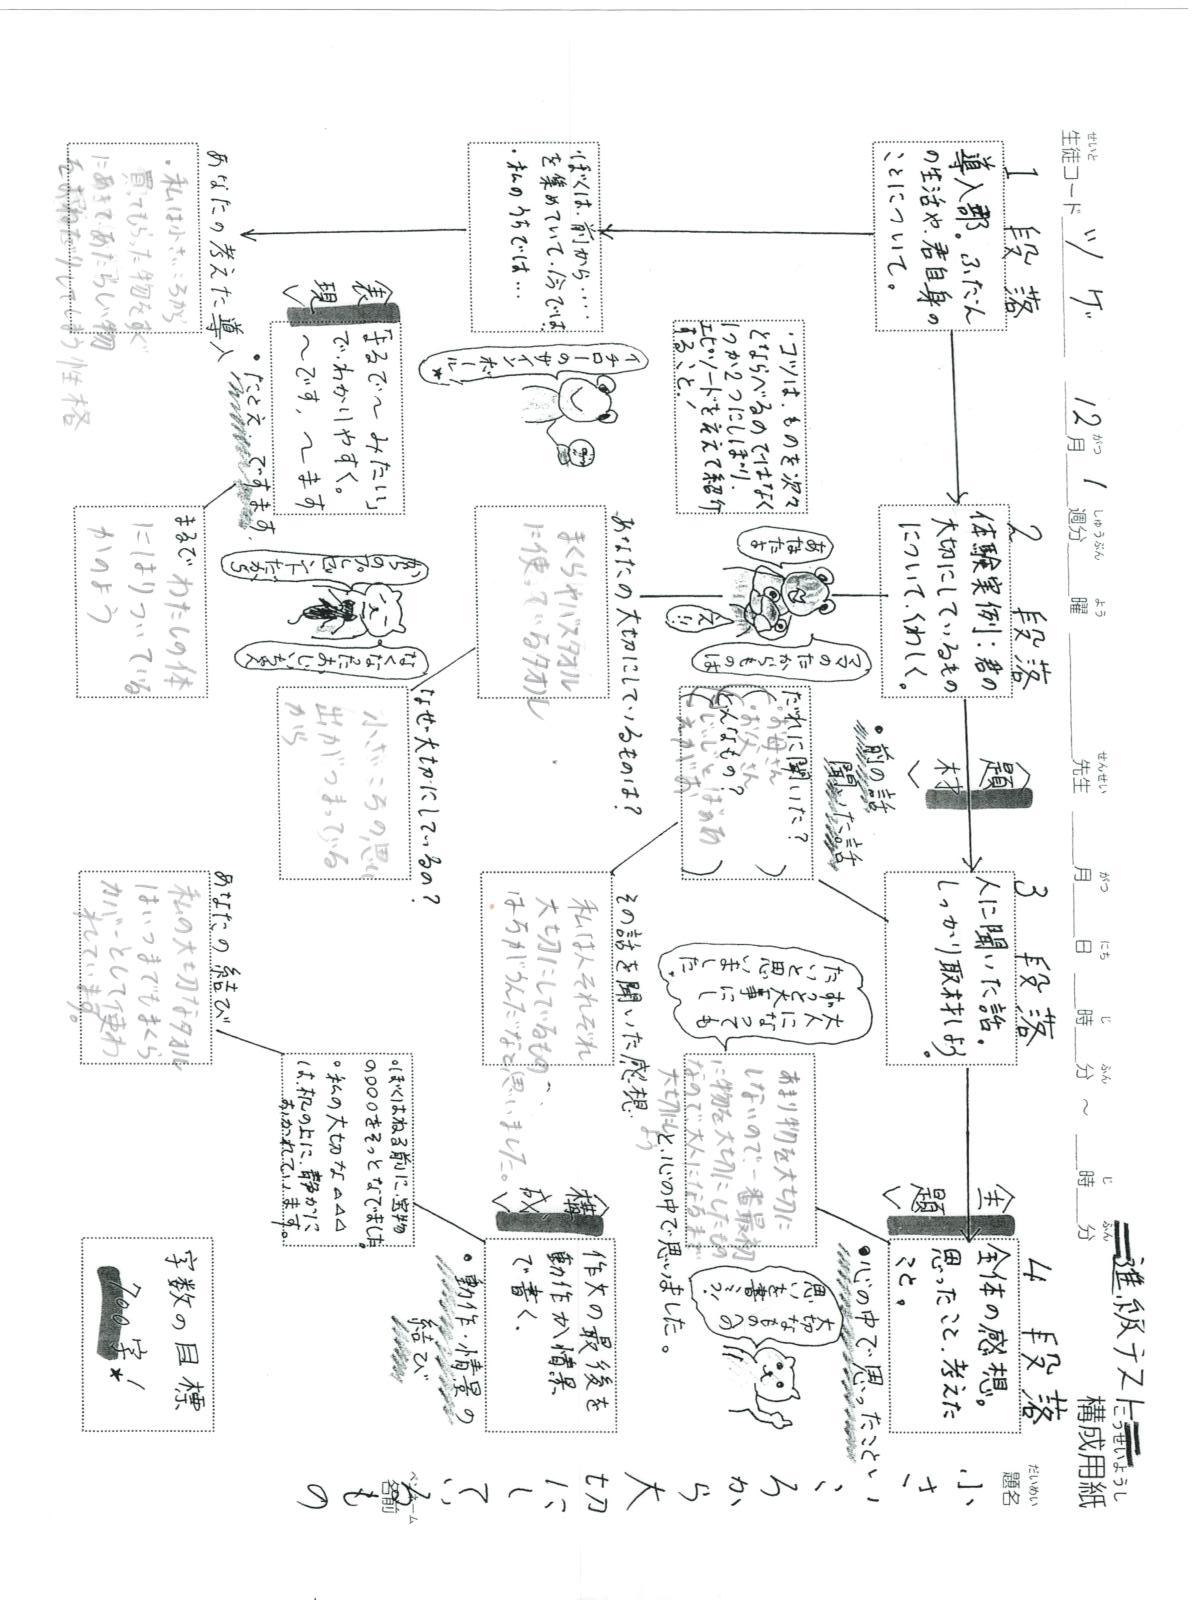 進級テスト
こうせいようし
構成用紙
だいめい
題名
小さいころから大切にしているもの
ペンネーム
名前
せいと
生徒コード ツゲ
12月 1週分 曜 先生 月 日 時 分 ～ 時 分
1 段落
導入部。ふだん
の生活や、君自身の
ことについて。
ぼくは、前から‥‥
を集めていて、今では
・私のうちでは…
あなたの考えた導入
・私は小さいころから
買ってもらった物をすぐ
にあきて、あたらしい物
してしまう性格
2 段落
体験実例：君の
大切にしているもの
について、くわしく。
・コツは、ものを次々
とならべるのではなく
1つか2つにしぼり、
エピソードを交えて紹介
すること！
イチローのサインボール！★
あなたの大切にしているものは？
まくらやバスタオル
に使っているタオル
ママのたからものは
あなたよ
なぜ大切にしているの？
小さいころの思い
出がつまっている
から
なくなったおじいちゃん
からのプレゼントだから
〈表現〉
「まるで～みたい」
でわかりやすく。
～です、～ます
・たとえ、ですます
まるで わたしの体
にはりついている
かのよう
3 段落
人に聞いた話。
しっかり取材しよう。
〈題材〉
・前の話
聞いた話
だれに聞いた？
お母さん
お父さん
どんなもの？
その話を聞いた感想
私は人それぞれ
大切にしているもの
はちがうんだなと思いました。
4 段落
全体の感想。
思ったこと、考えた
こと。
〈主題〉
・心の中で思ったこと
大切なものへの
思いを書こう！
大人になっても
ずっと大事にし
たいと思いました。
あまり物を大切に
しないので、一番最初
に物を大切にしたもの
なので大人になるまで
大切にしよう
と、心の中で思いました。
〈構成〉
作文の最後を
動作か情景
で書く。
・動作・情景の
結び
・ぼくはねる前に、宝物
の○○○○をそっとなでました。
・私の大切な△△△
は、机の上に、静かに
おかれています。
あなたの結び
私の大切なタオル
はいつまでもまくら
カバーとして使わ
れています。
字数の目標
700字★！